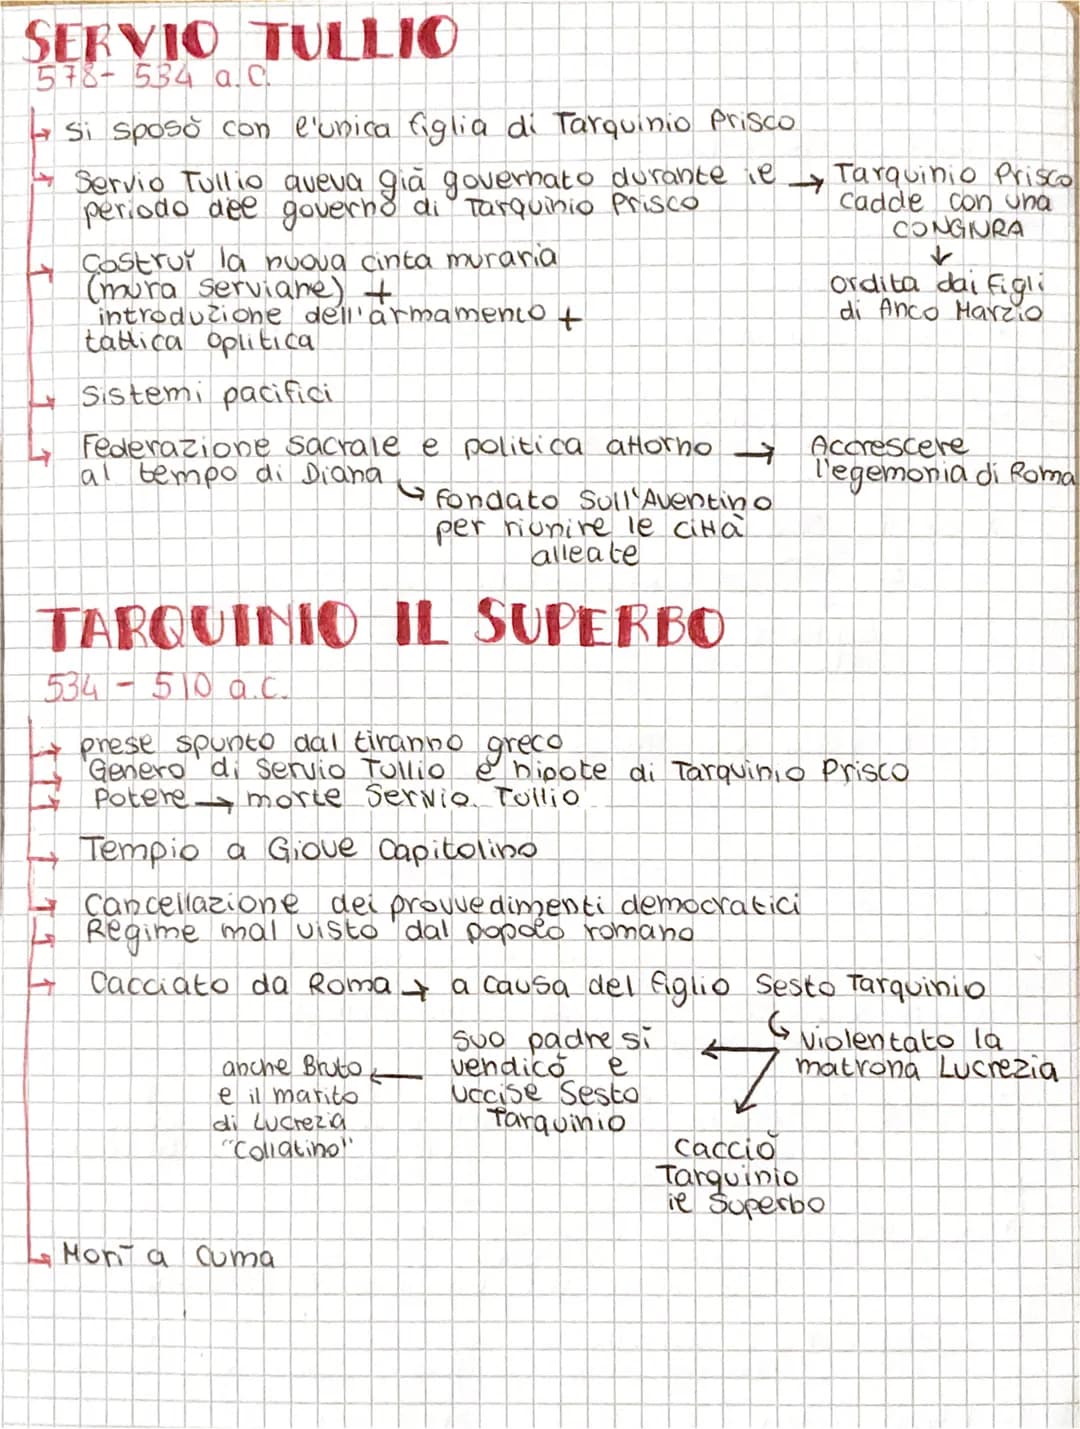 SERVIO TULLIO
578- 534 a.C.
si sposò con l'unica figlia di Tarquinio Prisco
Servio Tullio aveva già governato durante il
periodo del governo di Tarquinio Prisco
→ Tarquinio Prisco
cadde con una
CONGIURA
↓
ordita dai figli
di Anco Marzio
Costruì la nuova cinta muraria
(mura serviane) +
introduzione dell'armamento +
tattica oplitica
Sistemi pacifici
Federazione sacrale e politica attorno → Accrescere
al tempo di Diana
l'egemonia di Roma
fondato sull'Aventino
per riunire le città
alleate
TARQUINIO IL SUPERBO
534 - 510 a.C.
prese spunto dal tiranno greco
Genero di Servio Tullio e nipote di Tarquinio Prisco
Potere → morte Servio Tullio
Tempio a Giove Capitolino
Cancellazione dei provvedimenti democratici
Regime mal visto dal popolo romano
Cacciato da Roma → a causa del figlio Sesto Tarquinio
violentato la
matrona Lucrezia
suo padre si
vendicò e
uccise Sesto
Tarquinio
anche Bruto
e il marito
di Lucrezia
"Collatino"
cacciò
Tarquinio
il Superbo
Morì a Cuma